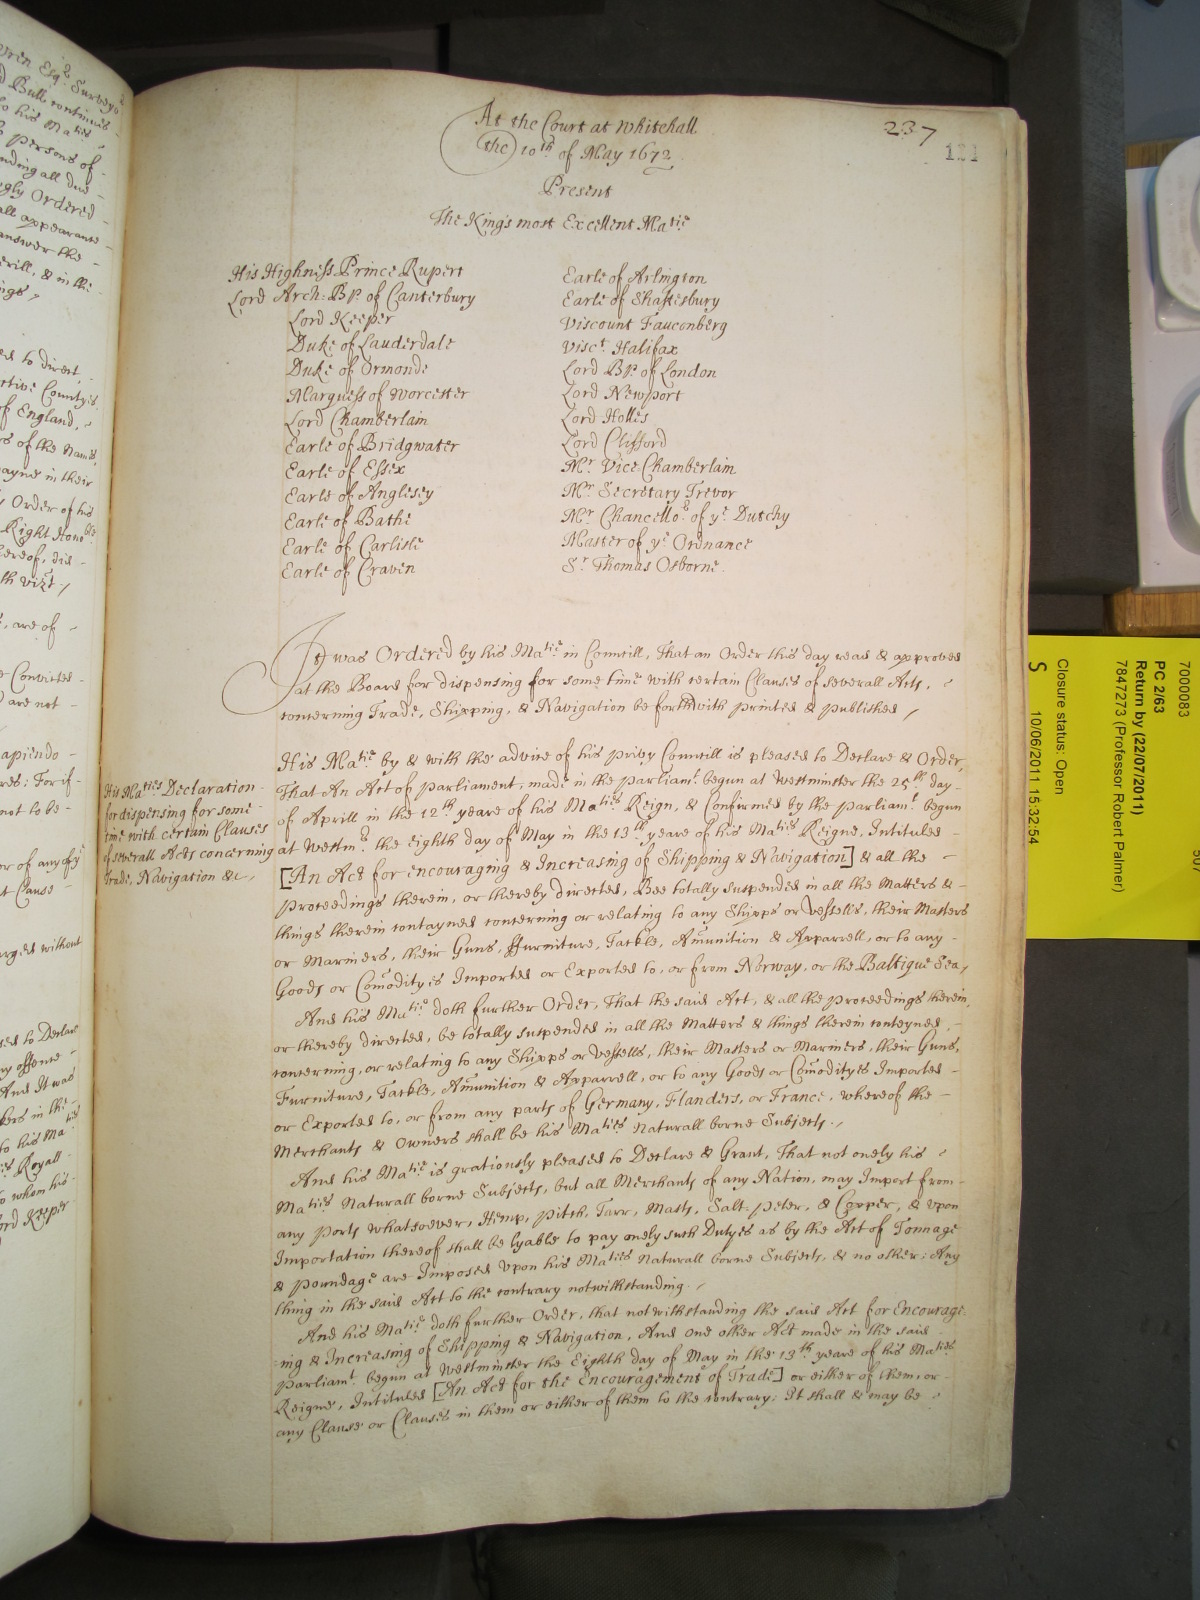 uren Esqr. Survey
Bull continues
to his Maties
persons of
nding all due
gly Ordered
all appearance
answer the
erill, & in the
ngs,
ed to direct
rtive Countyes
of England,
rs of the Names
ayne in their
Order of his
Right Honoble
hereof, did
th vizt,
, are of
e Convicted
are not
apiendo
res: For if
not to be
er of any of ye
t Clause
arged without
sed to Declare
ny offence
And It was
kers in the
to his Maties
Royall
to whom his
ord Keeper
At the Court at Whitehall
the 10th of May 1672
237
121
Present
The Kings most Excellent Matie
His Highness Prince Rupert
Lord Arch:Bp. of Canterbury
Lord Keeper
Duke of Lauderdale
Duke of Ormonde
Marquess of Worcester
Lord Chamberlain
Earle of Bridgwater
Earle of Essex
Earle of Anglesey
Earle of Bathe
Earle of Carlisle
Earle of Craven
Earle of Arlington
Earle of Shaftesbury
Viscount Fauconberg
Visct. Halifax
Lord Bp. of London
Lord Newport
Lord Holles
Lord Clifford
Mr. Vice Chamberlain
Mr. Secretary Trevor
Mr. Chancellor. of ye. Dutchy
Master of ye. Ordnance
Sr. Thomas Osborne.
It was Ordered by his Matie in Councill, That an Order this day read & approved
at the Board for dispensing for some time with certain Clauses of severall Acts,
concerning Trade, Shipping, & Navigation be forthwith printed & published,
His Maties Declaration
for dispensing for some
time with certain Clauses
of severall Acts concerning
Trade, Navigation &c,
His Matie by & with the advice of his privy Councill is pleased to Declare & Order,
That An Act of parliament, made in the parliamt. begun at Westminster the 25th day
of Aprill in the 12th yeare of his Maties Reign, & Confirmed by the parliamt. begun
at Westmr. the eighth day of May in the 13th yeare of his Maties Reigne, Intituled
[An Act for encouraging & Increasing of Shipping & Navigation] & all the
proceedings therein, or thereby directed, Bee totally suspended in all the Matters &
things therein contayned concerning or relating to any Shipps or Vessells, their Masters
or Mariners, their Guns, ffurniture, Tackle, Amunition & Apparrell, or to any
Goods or Comodityes Imported or Exported to, or from Norway, or the Baltique Sea,
And his Matie doth further Order, That the said Act, & all the proceedings therein,
or thereby directed, be totally suspended in all the Matters & things therein conteyned,
concerning, or relating to any Shipps or Vessells, their Masters or Mariners, their Guns,
Furniture, Tackle, Amunition & Apparrell, or to any Goods or Comodityes Imported
or Exported to, or from any parts of Germany, Flanders, or France, whereof the
Merchants & Owners shall be his Maties Naturall borne Subjects.,
And his Matie is gratiously pleased to Declare & Grant, That not onely his
Maties Naturall borne Subjects, but all Merchants of any Nation, may Import from
any Ports whatsoever, Hemp, pitch, Tarr, Masts, Salt-peter, & Copper, & upon
Importation thereof shall be lyable to pay onely such Dutyes as by the Act of Tonnage
& poundage are Imposed upon his Maties Naturall borne Subjects, & no other: Any
thing in the said Act to the contrary notwithstanding.,
And his Matie doth further Order, that notwithstanding the said Act for Encourage
=ing & Increasing of Shipping & Navigation, And one other Act made in the said
parliamt. begun at Westminster the Eighth day of May in the 13th yeare of his Maties
Reigne, Intituled [An Act for the Encouragement of Trade] or either of them, or
any Clause or Clauses in them or either of them to the contrary: It shall & may be
7000083
PC 2/63
Return by (22/07/2011)
7847273 (Professor Robert Palmer)
Closure status: Open
S 10/06/2011 15:32:54
507